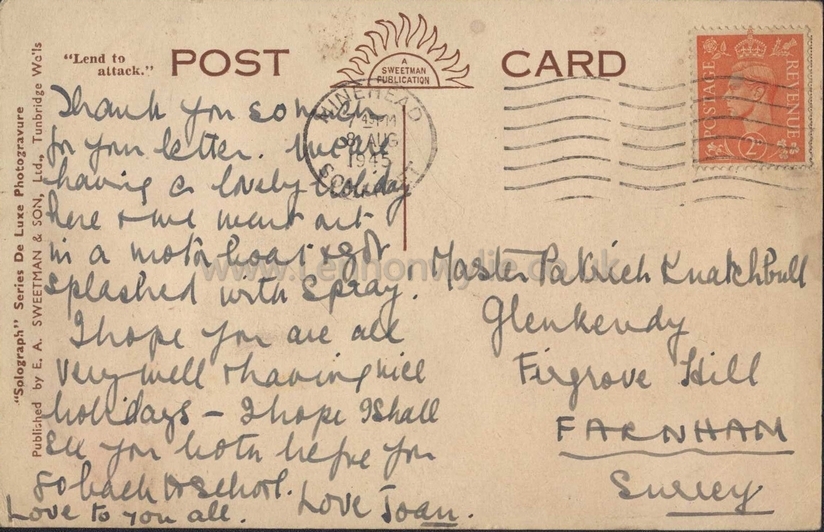 "Lend to
attack."
POST
A
SWEETMAN
PUBLICATION
CARD
"Solograph" Series De Luxe Photogravure
Published by E. A. SWEETMAN & SON, Ltd., Tunbridge Wells
MINEHEAD
PM
8 AUG
1945
SOMERSET
POSTAGE
REVENUE
2D
Thank you so much
for your letter. We are
having a lovely holiday
here & we went out
in a motor boat & got
splashed with spray.
I hope you are all
very well & having nice
holidays – I hope I shall
see you both before you
go back to school.
Love to you all. Love Joan.
Master Patrick Knatchbull
Glenkendy
Firgrove Hill
FARNHAM
Surrey
www.lennonwylie.co.uk